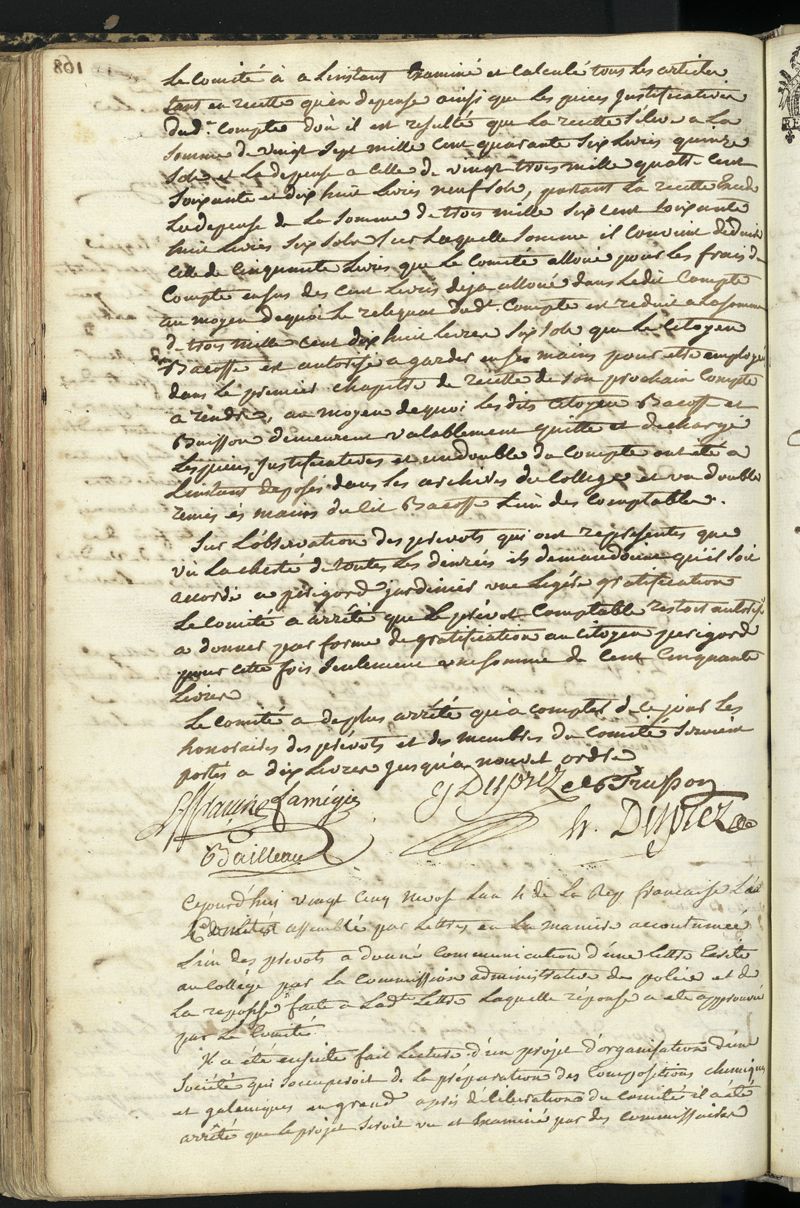 168
Le Comité à a Linstant Examiné et Calculé tous Les articles
tant en recette qu'en depense ainsi que Les pieces Justificatives
dud. Compte dou il est resulté que La recette S'éleve a La
Somme de vingt Sept mille Cent quarante Six Livres quinze
Sols et La depense a Celle de vingt trois mille quatre Cent
Soixante et dix huit Livres neuf Sols, partant La recette Excede
La depense de La Somme de trois mille Six Cent Soixante
huit Livres Six Sols Sur Laquelle Somme il Convient déduire
Celle de Cinquante Livres que Le Comité alloue pour Les frais de
Compte en sus des Cent Livres deja alloué dans Ledit Compte
au moyen dequoi Le reliquat dudt. Compte est reduit a La somme
de trois mille Cent dix huit Livres Six Sols que Le Citoyen
Bacoffe est autorise a garder en Ses mains pour etre employé
dans Le premier Chapitre de recette de Son prochain Compte
a rendre, au moyen dequoi Les dits Citoyen Bacoff et
Buisson demeurent valablement quitte et dechargé
Les pieces Justificatives et un double du Compte ont été a
Linstant deposés dans Les archives du College et un double
remis és mains dudit Bacoffe L'un des Comptables.
Sur L'observation des prevots qui ont représentes que
vu La cherté de toutes Les denrées ils demandoient qu'il soit
accordé a périgord jardinier une Legere gratification
Le Comité a arrêté que Le prévot Comptable restoit autorisé
a donner par forme de gratification au Citoyen perigord
pour cette fois Seulement une somme de Cent Cinquante
Livres
Le Comité a de plus arrêté qu'a compter de ce jour Les
honoraires des prévots et des membres du Comité Seroient
portés a dix Livres jusqu'a nouvel ordre
Lamégie
Dusprez Trusson
h. Duprez
Bailleau
Cejourd'hui vingt Cinq nivos Lan 4 de La Rep. française
Le Comité assemblé par Lettres en La maniere accoutumée
L'un des prevots a donné Communication d'une Lettre Ecrite
au College par La Commission administrative de police et de
La reponse faite a Ladte Lettre Laquelle réponse a été approuvée
par Le Comité.
Il a été ensuite fait Lecture d'un projet d'organisation d'une
Société qui s'occuperoit de La préparation des Compositions chimiques
et galeniques en grand après déliberations du Comité il a été
arrêté que Le projet Seroit vu et Examiné par des Commissaires